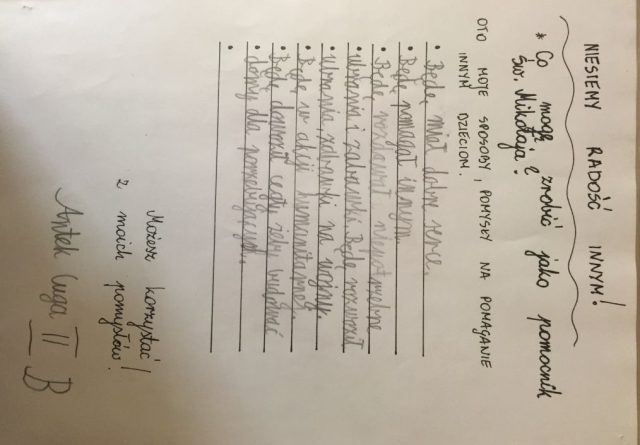 NIESIEMY RADOŚĆ INNYM!
* Co mogę zrobić jako pomocnik
Św. Mikołaja?
OTO MOJE SPOSOBY I POMYSŁY NA POMAGANIE
INNYM DZIECIOM.
• Będę miał dobre serce.
• Będę pomagał innym.
• Będę rozdawał niepotrzebne
• ubrania i zabawki. Będę rozwoził
• ubrania, zabawki na
• Będę w akcji humanitarnej.
• Będę dowoził cegły żeby wybudować
• domy dla potrzebujących.
•
Możesz korzystać
z moich pomysłów!
Antek Cuga II B